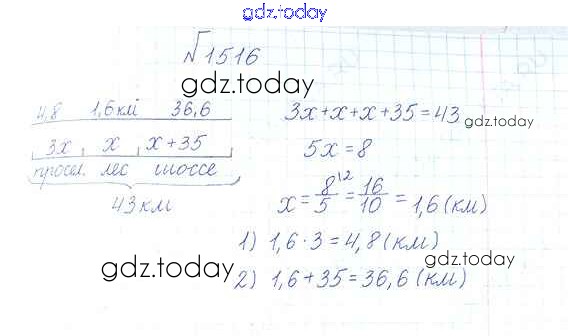 gdz.today
№1516
gdz.today
4,8 1,6км 36,6
3x x x+35
просел. лес шоссе
43 км
3x+x+x+35=43
gdz.today
5x=8
x = 8/5 ^(2 = 16/10 = 1,6 (км)
1) 1,6·3=4,8(км)
gdz.today
2) 1,6+35=36,6(км)
gdz.today